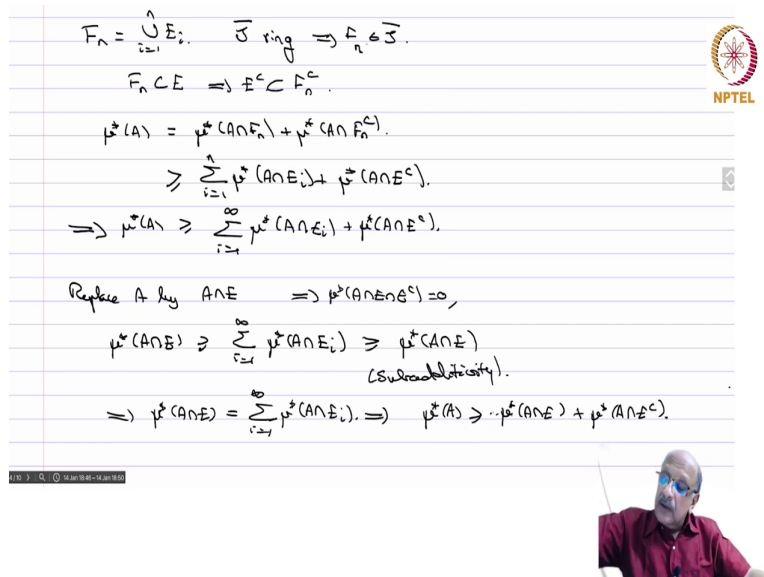 Fₙ = ⋃ᵢ₌₁ⁿ Eᵢ. S̄ ring ⇒ Fₙ ∈ S̄.
Fₙ ⊂ E ⇒ Eᶜ ⊂ Fₙᶜ.
μ*(A) = μ*(A∩Fₙ) + μ*(A∩Fₙᶜ).
≥ ∑ᵢ₌₁ⁿ μ*(A∩Eᵢ) + μ*(A∩Eᶜ).
⇒ μ*(A) ≥ ∑ᵢ₌₁^∞ μ*(A∩Eᵢ) + μ*(A∩Eᶜ).
Replace A by A∩E ⇒ μ*(A∩E∩Eᶜ) = 0,
μ*(A∩E) ≥ ∑ᵢ₌₁^∞ μ*(A∩Eᵢ) ≥ μ*(A∩E)
(Subadditivity).
⇒ μ*(A∩E) = ∑ᵢ₌₁^∞ μ*(A∩Eᵢ). ⇒ μ*(A) ≥ μ*(A∩E) + μ*(A∩Eᶜ).
NPTEL
4/10 14 Jan 18:46 – 14 Jan 18:50